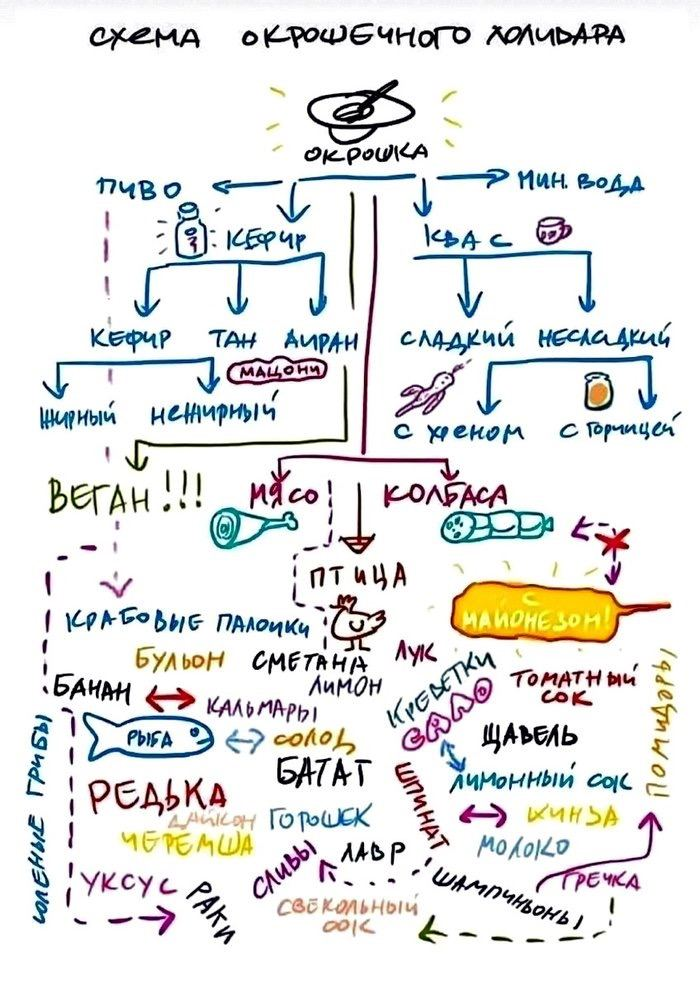 СХЕМА ОКРОШЕЧНОГО ХОЛИВАРА
ОКРОШКА
ПИВО
МИН. ВОДА
КЕФИР
КВАС
КЕФИР ТАН АИРАН
СЛАДКИЙ НЕСЛАДКИЙ
МАЦОНИ
ЖИРНЫЙ НЕЖИРНЫЙ
С ХРЕНОМ С ГОРЧИЦЕЙ
ВЕГАН!!!
МЯСО
КОЛБАСА
ПТИЦА
С
МАЙОНЕЗОМ!
КРАБОВЫЕ ПАЛОЧКИ
БУЛЬОН
СМЕТАНА
ЛУК
ЛИМОН
БАНАН
КАЛЬМАРЫ
КРЕВЕТКИ
САЛО
ТОМАТНЫЙ
СОК
ПОМИДОРЫ
РЫБА
СОЛОД
ЩАВЕЛЬ
БАТАТ
ЛИМОННЫЙ СОК
СОЛЕНЫЕ ГРИБЫ
РЕДЬКА
ДАЙКОН
ГОРОШЕК
ШПИНАТ
КИНЗА
ЧЕРЕМША
ЛАВР
МОЛОКО
УКСУС
РАКИ
СЛИВЫ
ШАМПИНЬОНЫ
ГРЕЧКА
СВЕКОЛЬНЫЙ
СОК